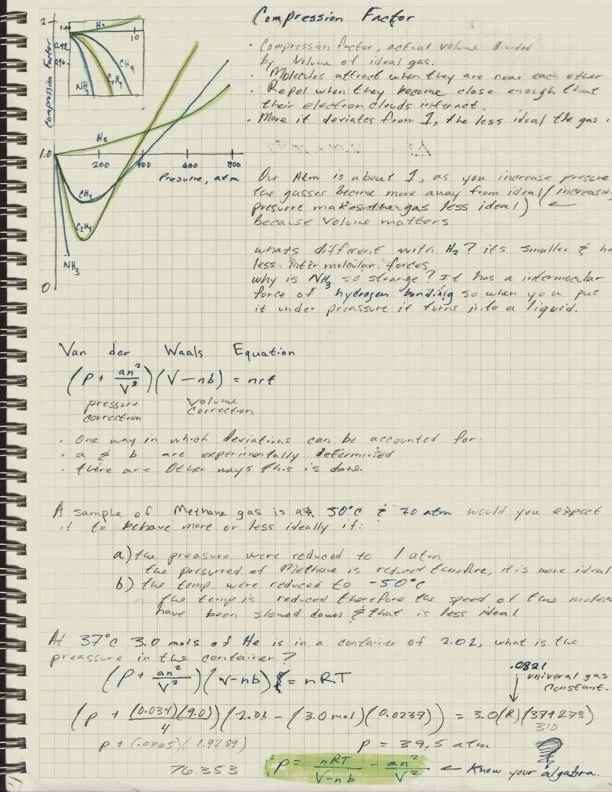 Compression Factor
2
1.00
H₂
10
0.98
0.96
CH₄
C₂H₄
NH₃
Compression Factor
· Compression factor, actual volume divided
by Volume of ideal gas.
· Molecules attract when they are near each other
· Repel when they become close enough that
their electron clouds interact.
· More it deviates from 1, the less ideal the gas is
He
1.0
200
400
600
800
Pressure, atm
CH₄
C₂H₄
NH₃
0
Our Atm is about 1, as you increase pressure
the gasses become more away from ideal (increasing
pressure makes the gas less ideal) ←
because volume matters
whats different with H₂? its smaller & ha
less inter molecular forces
why is NH₃ so strange? It has a intermolecular
force of hydrogen bonding so when you put
it under preassure it turns into a liquid.
Van der Waals Equation
(P + an²/V²)(V-nb) = nrt
pressure correction
volume correction
· One way in which deviations can be accounted for:
· a & b are experimentally determined
· there are Other ways this is done.
A sample of Methane gas is at 50°C & 20 atm would you expect
it to behave more or less ideally if:
a) the preasure were reduced to 1 atm
the presurred of Methane is reduced therfore, it is more ideal
b) the temp. were reduced to -50°C
the temp is reduced therefore the speed of the molec
have been slowed down & that is less ideal
At 37°C 3.0 mols of He is in a container of 2.0L, what is the
preassure in the container?
.0821
(P + an²/V²)(V-nb) = nRT
univeral gas
constant.
(P + (0.034)(9.0)/4)(2.0L - (3.0 mol)(0.0237)) = 3.0(R)(37+273)
310
P + (.0765)(1.9289)
P = 39.5 atm
76.353
P = nRT/V-nb - an²/V² ← Know your algabra.